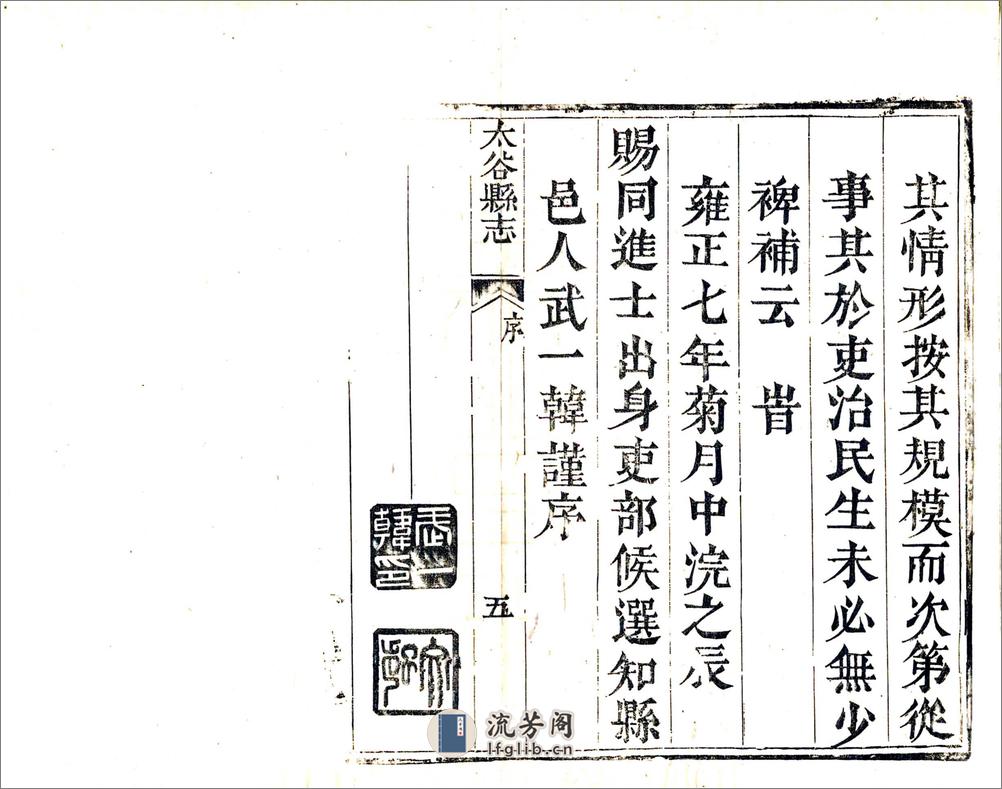 其情形按其規模而次第從
事其於吏治民生未必無少
裨補云　旹
雍正七年菊月中浣之辰
賜同進士出身吏部候選知縣
邑人武一韓謹序
太谷縣志
序
五
武一韓印
流芳阁
lfglib.cn